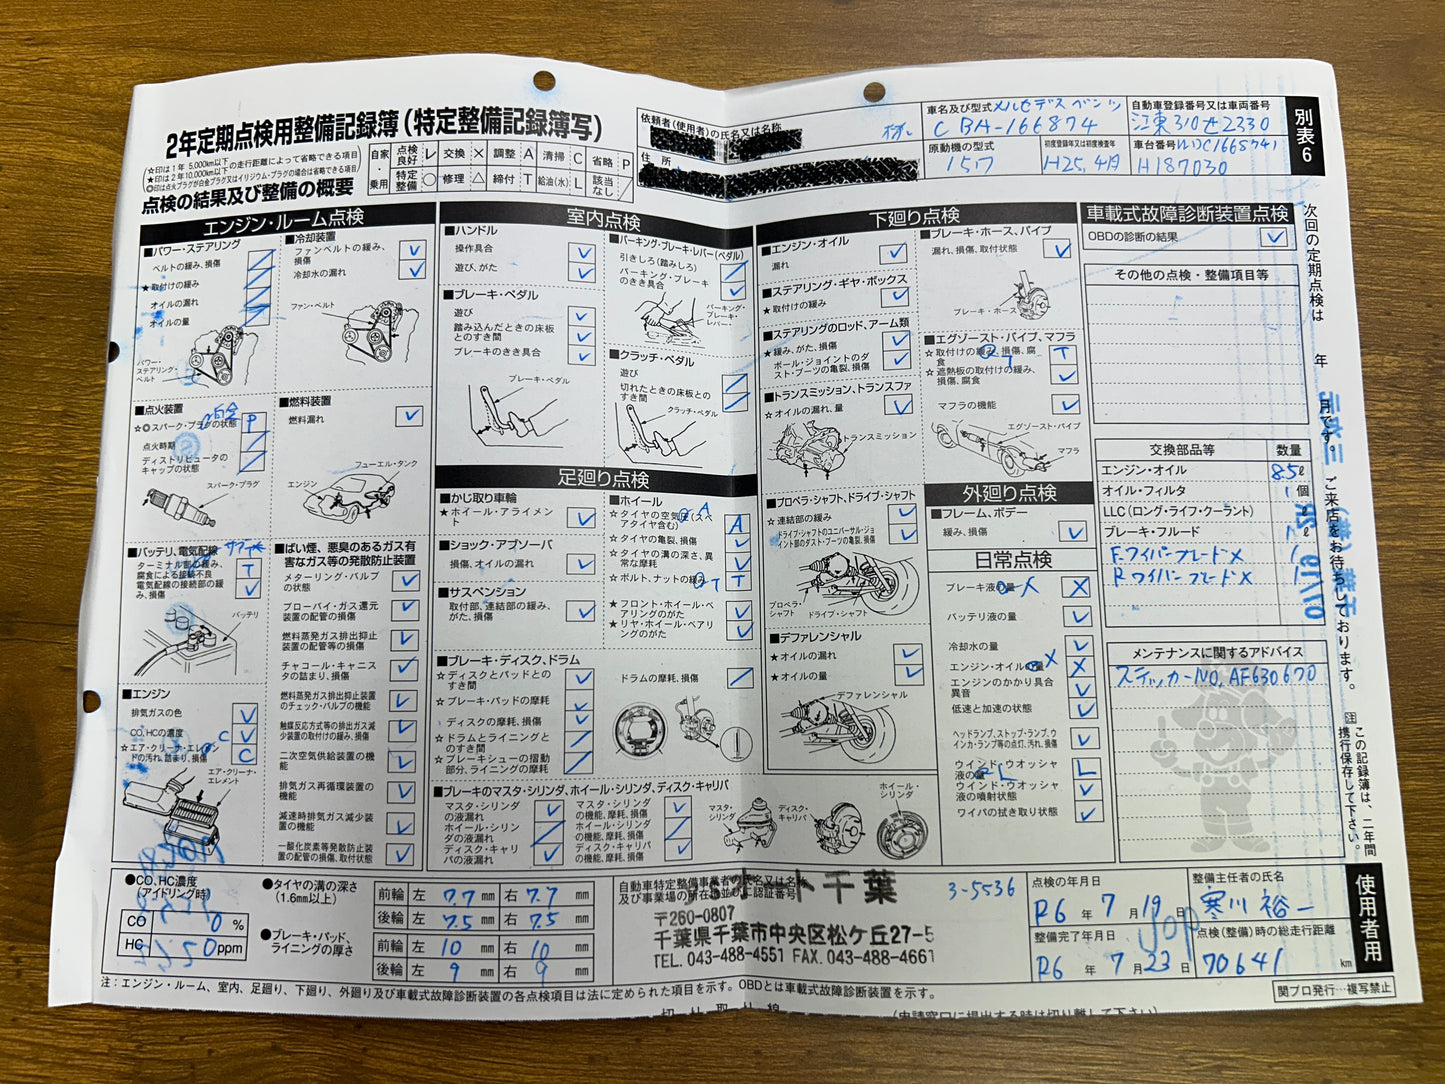 2年定期点検用整備記録簿(特定整備記録簿写)
☆印は1年 5,000km以下
★印は2年10,000km以下
の走行距離によって省略できる項目
◎印は点火プラグが白金プラグ又はイリジウム・プラグの場合は省略できる項目
点検の結果及び整備の概要
自家・乗用
点検良好 レ 交換 × 調整 A 清掃 C 省略 P
特定整備 ○ 修理 △ 締付 T 給油(水) L 該当なし /
依頼者(使用者)の氏名又は名称
様
住 所
車名及び型式 メルセデスベンツ
CBA-166874
原動機の型式
初度登録年又は初度検査年
H25.4月
自動車登録番号又は車両番号
江東310せ2330
車台番号 WDC1668741
H187030
別表6
エンジン・ルーム点検
■パワー・ステアリング
ベルトの緩み、損傷 /
★取付けの緩み /
オイルの漏れ /
オイルの量 /
パワー・ステアリング・ベルト
■冷却装置
ファンベルトの緩み、損傷 レ
冷却水の漏れ レ
ファン・ベルト
■点火装置
白金
☆◎スパーク・プラグの状態 P
点火時期 /
ディストリビュータのキャップの状態 /
スパーク・プラグ
■燃料装置
燃料漏れ レ
フューエル・タンク
エンジン
■バッテリ、電気配線
ターミナル部の緩み、腐食による接続不良 T
電気配線の接続部の緩み、損傷 レ
バッテリ
■ばい煙、悪臭のあるガス有害なガス等の発散防止装置
メターリング・バルブの状態 レ
ブローバイ・ガス還元装置の配管の損傷 レ
燃料蒸発ガス排出抑止装置の配管等の損傷 レ
チャコール・キャニスタの詰まり、損傷 レ
燃料蒸発ガス排出抑止装置のチェック・バルブの機能 レ
触媒反応方式等の排出ガス減少装置の取付けの緩み、損傷 レ
二次空気供給装置の機能 レ
排気ガス再循環装置の機能 レ
減速時排気ガス減少装置の機能 レ
一酸化炭素等発散防止装置の配管の損傷、取付状態 レ
■エンジン
排気ガスの色 レ
CO、HCの濃度 レ
☆エア・クリーナ・エレメントの汚れ、詰まり、損傷 C
エア・クリーナ・エレメント
室内点検
■ハンドル
操作具合 レ
遊び、がた レ
■ブレーキ・ペダル
遊び レ
踏み込んだときの床板とのすき間 レ
ブレーキのきき具合 レ
ブレーキ・ペダル
■パーキング・ブレーキ・レバー(ペダル)
引きしろ(踏みしろ) /
パーキング・ブレーキのきき具合 レ
パーキング・ブレーキ・レバー
■クラッチ・ペダル
遊び /
切れたときの床板とのすき間 /
クラッチ・ペダル
足廻り点検
■かじ取り車輪
★ホイール・アライメント レ
■ショック・アブソーバ
損傷、オイルの漏れ レ
■サスペンション
取付部、連結部の緩み、がた、損傷 レ
■ホイール
☆タイヤの空気圧(スペアタイヤ含む) A
☆タイヤの亀裂、損傷 レ
☆タイヤの溝の深さ、異常な摩耗 レ
☆ボルト、ナットの緩み T
★フロント・ホイール・ベアリングのがた レ
★リヤ・ホイール・ベアリングのがた レ
■ブレーキ・ディスク、ドラム
☆ディスクとパッドとのすき間 レ
☆ブレーキ・パッドの摩耗 レ
ディスクの摩耗、損傷 レ
☆ドラムとライニングとのすき間 /
☆ブレーキシューの摺動部分、ライニングの摩耗 /
ドラムの摩耗、損傷 /
■ブレーキのマスタ・シリンダ、ホイール・シリンダ、ディスク・キャリパ
マスタ・シリンダの液漏れ レ
ホイール・シリンダの液漏れ /
ディスク・キャリパの液漏れ レ
マスタ・シリンダの機能、摩耗、損傷 レ
ホイール・シリンダの機能、摩耗、損傷 /
ディスク・キャリパの機能、摩耗、損傷 レ
マスタ・シリンダ
ディスク・キャリパ
ホイール・シリンダ
下廻り点検
■エンジン・オイル
漏れ レ
■ステアリング・ギヤ・ボックス
★取付けの緩み レ
■ステアリングのロッド、アーム類
★緩み、がた、損傷 レ
ボール・ジョイントのダスト・ブーツの亀裂、損傷 レ
■トランスミッション、トランスファ
☆オイルの漏れ、量 レ
トランスミッション
■プロペラ・シャフト、ドライブ・シャフト
☆連結部の緩み レ
ドライブ・シャフトのユニバーサル・ジョイント部のダスト・ブーツの亀裂、損傷 レ
プロペラ・シャフト
ドライブ・シャフト
■デファレンシャル
★オイルの漏れ レ
★オイルの量 レ
デファレンシャル
■ブレーキ・ホース、パイプ
漏れ、損傷、取付状態 レ
ブレーキ・ホース
■エグゾースト・パイプ、マフラ
☆取付けの緩み、損傷、腐食 T
☆遮熱板の取付けの緩み、損傷、腐食 レ
マフラの機能 レ
エグゾースト・パイプ
マフラ
外廻り点検
■フレーム、ボデー
緩み、損傷 レ
日常点検
ブレーキ液の量 ×
バッテリ液の量 レ
冷却水の量 レ
エンジン・オイルの量 ×
エンジンのかかり具合異音 レ
低速と加速の状態 レ
ヘッドランプ、ストップ・ランプ、ウインカ・ランプ等の点灯、汚れ、損傷 レ
ウインド・ウオッシャ液の量 L
ウインド・ウオッシャ液の噴射状態 レ
ワイパの拭き取り状態 レ
車載式故障診断装置点検
OBDの診断の結果 レ
その他の点検・整備項目等
交換部品等 数量
エンジン・オイル 8.5ℓ
オイル・フィルタ 1個
LLC(ロング・ライフ・クーラント) ℓ
ブレーキ・フルード 1ℓ
F.ワイパーブレード× 1
R ワイパーブレード× 1
メンテナンスに関するアドバイス
ステッカーNO, AF630670
次回の定期点検は 年 月です。ご来店をお待ちしております。
注 この記録簿は、二年間携行保存して下さい。
使用者用
●CO、HC濃度
(アイドリング時)
CO 0 %
HC 0 ppm
●タイヤの溝の深さ
(1.6mm以上)
前輪 左 7.7 mm 右 7.7 mm
後輪 左 7.5 mm 右 7.5 mm
●ブレーキ・パッド、ライニングの厚さ
前輪 左 10 mm 右 10 mm
後輪 左 9 mm 右 9 mm
自動車特定整備事業者の氏名又は名称及び事業場の所在地並びに認証番号
3-5536
〒260-0807
千葉県千葉市中央区松ケ丘27-5
TEL. 043-488-4551 FAX. 043-488-4661
点検の年月日
R6 年 7 月 19 日
整備完了年月日
R6 年 7 月 23 日
整備主任者の氏名
寒川 裕一
点検(整備)時の総走行距離
70641 km
注:エンジン・ルーム、室内、足廻り、下廻り、外廻り及び車載式故障診断装置の各点検項目は法に定められた項目を示す。OBDとは車載式故障診断装置を示す。
関プロ発行…複写禁止
切り取り線
(申請窓口に提出する時は切り離して下さい)